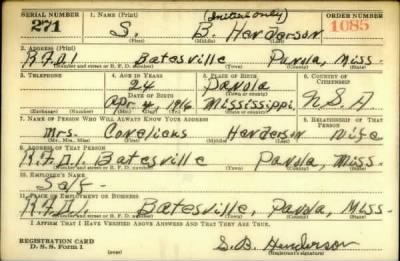 SERIAL NUMBER 1. NAME (Print) (Initial only) ORDER NUMBER
271 S. B. Henderson 1085
(First) (Middle) (Last)
2. ADDRESS (Print)
R.F.D.1 Batesville Panola, Miss.
(Number and street or R. F. D. number) (Town) (County) (State)
3. TELEPHONE 4. AGE IN YEARS 5. PLACE OF BIRTH 6. COUNTRY OF CITIZENSHIP
24 Panola
DATE OF BIRTH (Town or county)
Apr 4, 1916 Mississippi U.S.A
(Exchange) (Number) (Mo.) (Day) (Yr.) (State or country)
7. NAME OF PERSON WHO WILL ALWAYS KNOW YOUR ADDRESS 8. RELATIONSHIP OF THAT PERSON
Mrs. Henderson Wife
(Mr., Mrs., Miss) (First) (Middle) (Last)
9. ADDRESS OF THAT PERSON
R.F.D.1 Batesville Panola, Miss.
(Number and street or R. F. D. number) (Town) (County) (State)
10. EMPLOYER'S NAME
Self-
11. PLACE OF EMPLOYMENT OR BUSINESS
R.F.D.1. Batesville, Panola, Miss-
(Number and street or R. F. D. number) (Town) (County) (State)
I AFFIRM THAT I HAVE VERIFIED ABOVE ANSWERS AND THAT THEY ARE TRUE.
REGISTRATION CARD
D. S. S. Form 1 (over) S.B. Henderson
(Registrant's signature)